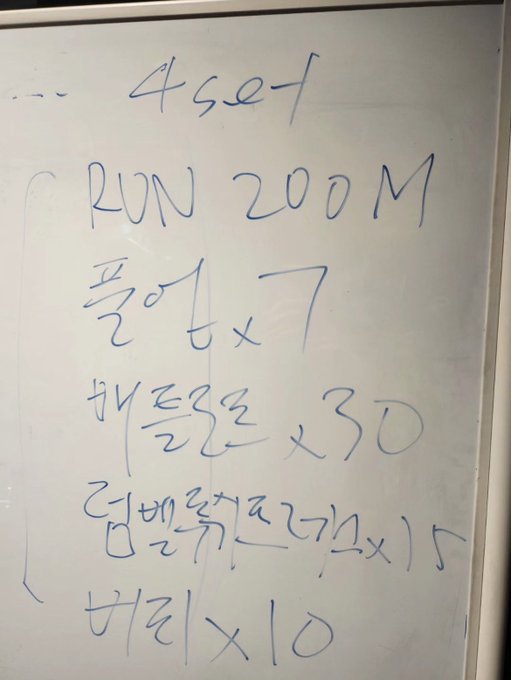 ... 4 set
RUN 200M
풀업 x 7
배틀로프 x 30
덤벨 프레스 x 15
버피 x 10